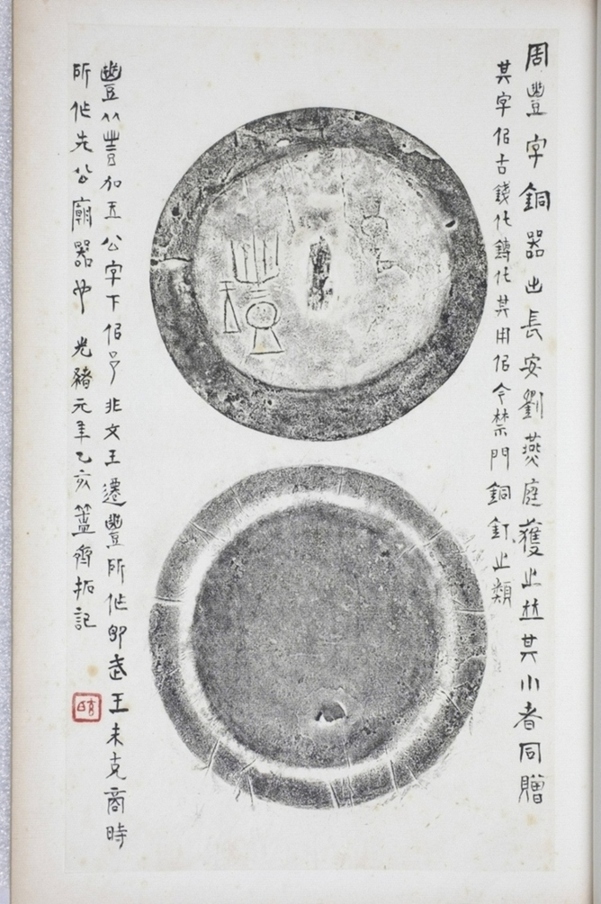 周豐字銅器出長安劉燕庭獲止並其小者同贈
其字佀古錢化鑄化其用佀今禁門銅釘止類
豐公字下佀非文王遷豐所作即武王未克商時
所作先公廟器也 光緒元年乙亥簠齋拓記